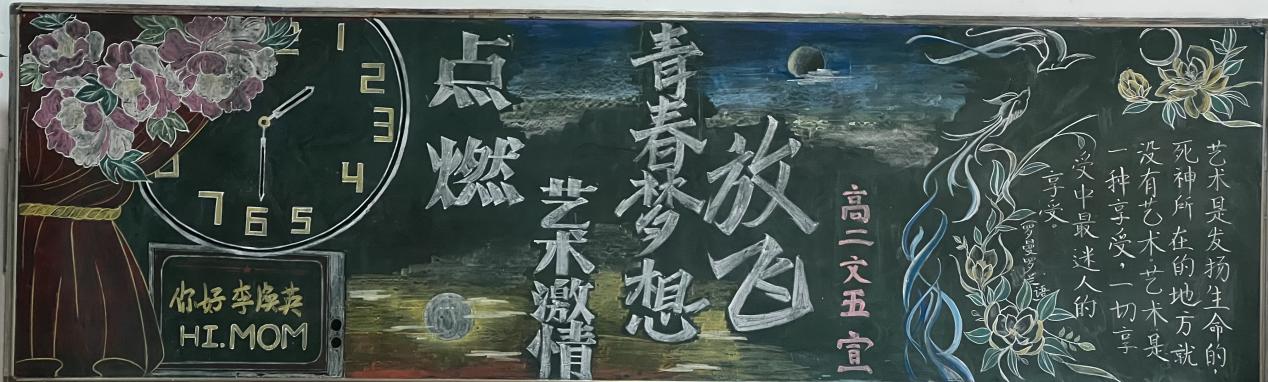 放飞
青春梦想
点燃
艺术激情
高二文五宣
艺术是发扬生命的,
死神所在的地方就
没有艺术.艺术是
一种享受,一切享
受中最迷人的
享受。
罗曼罗兰语
1
2
3
4
5
6
7
你好李焕英
HI.MOM